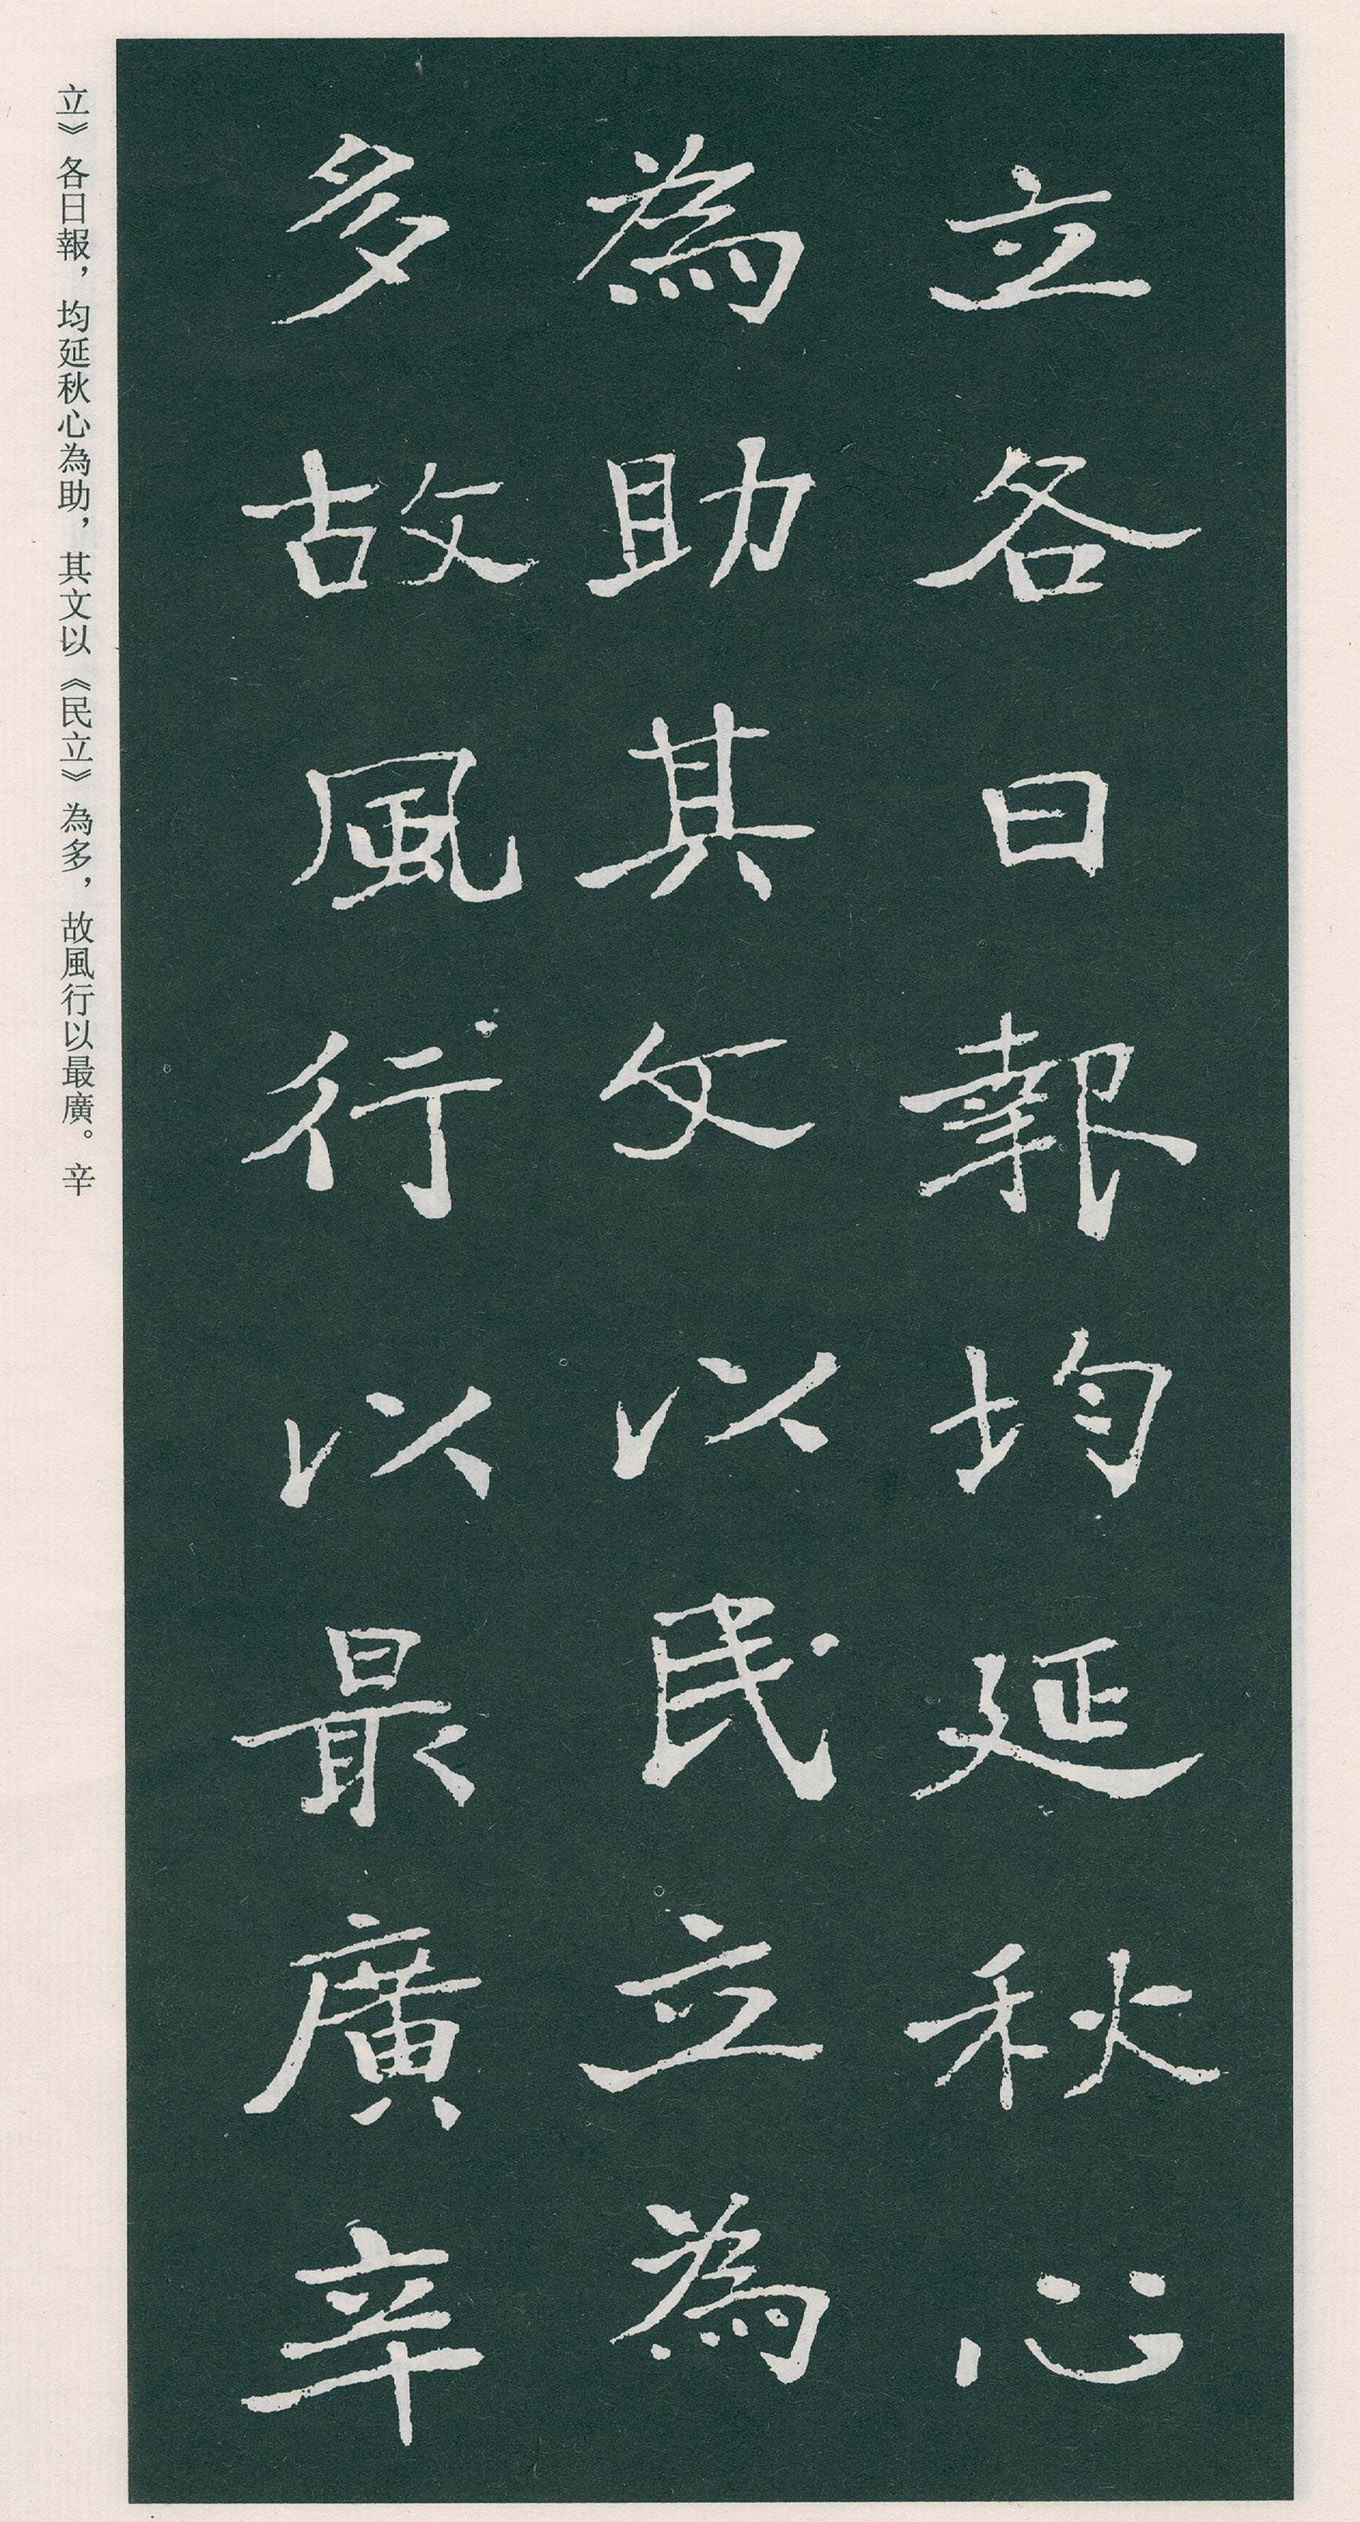 立各日報均延秋心
為助其文以民立為
多故風行以最廣辛
立》各日報，均延秋心為助，其文以《民立》為多，故風行以最廣。辛